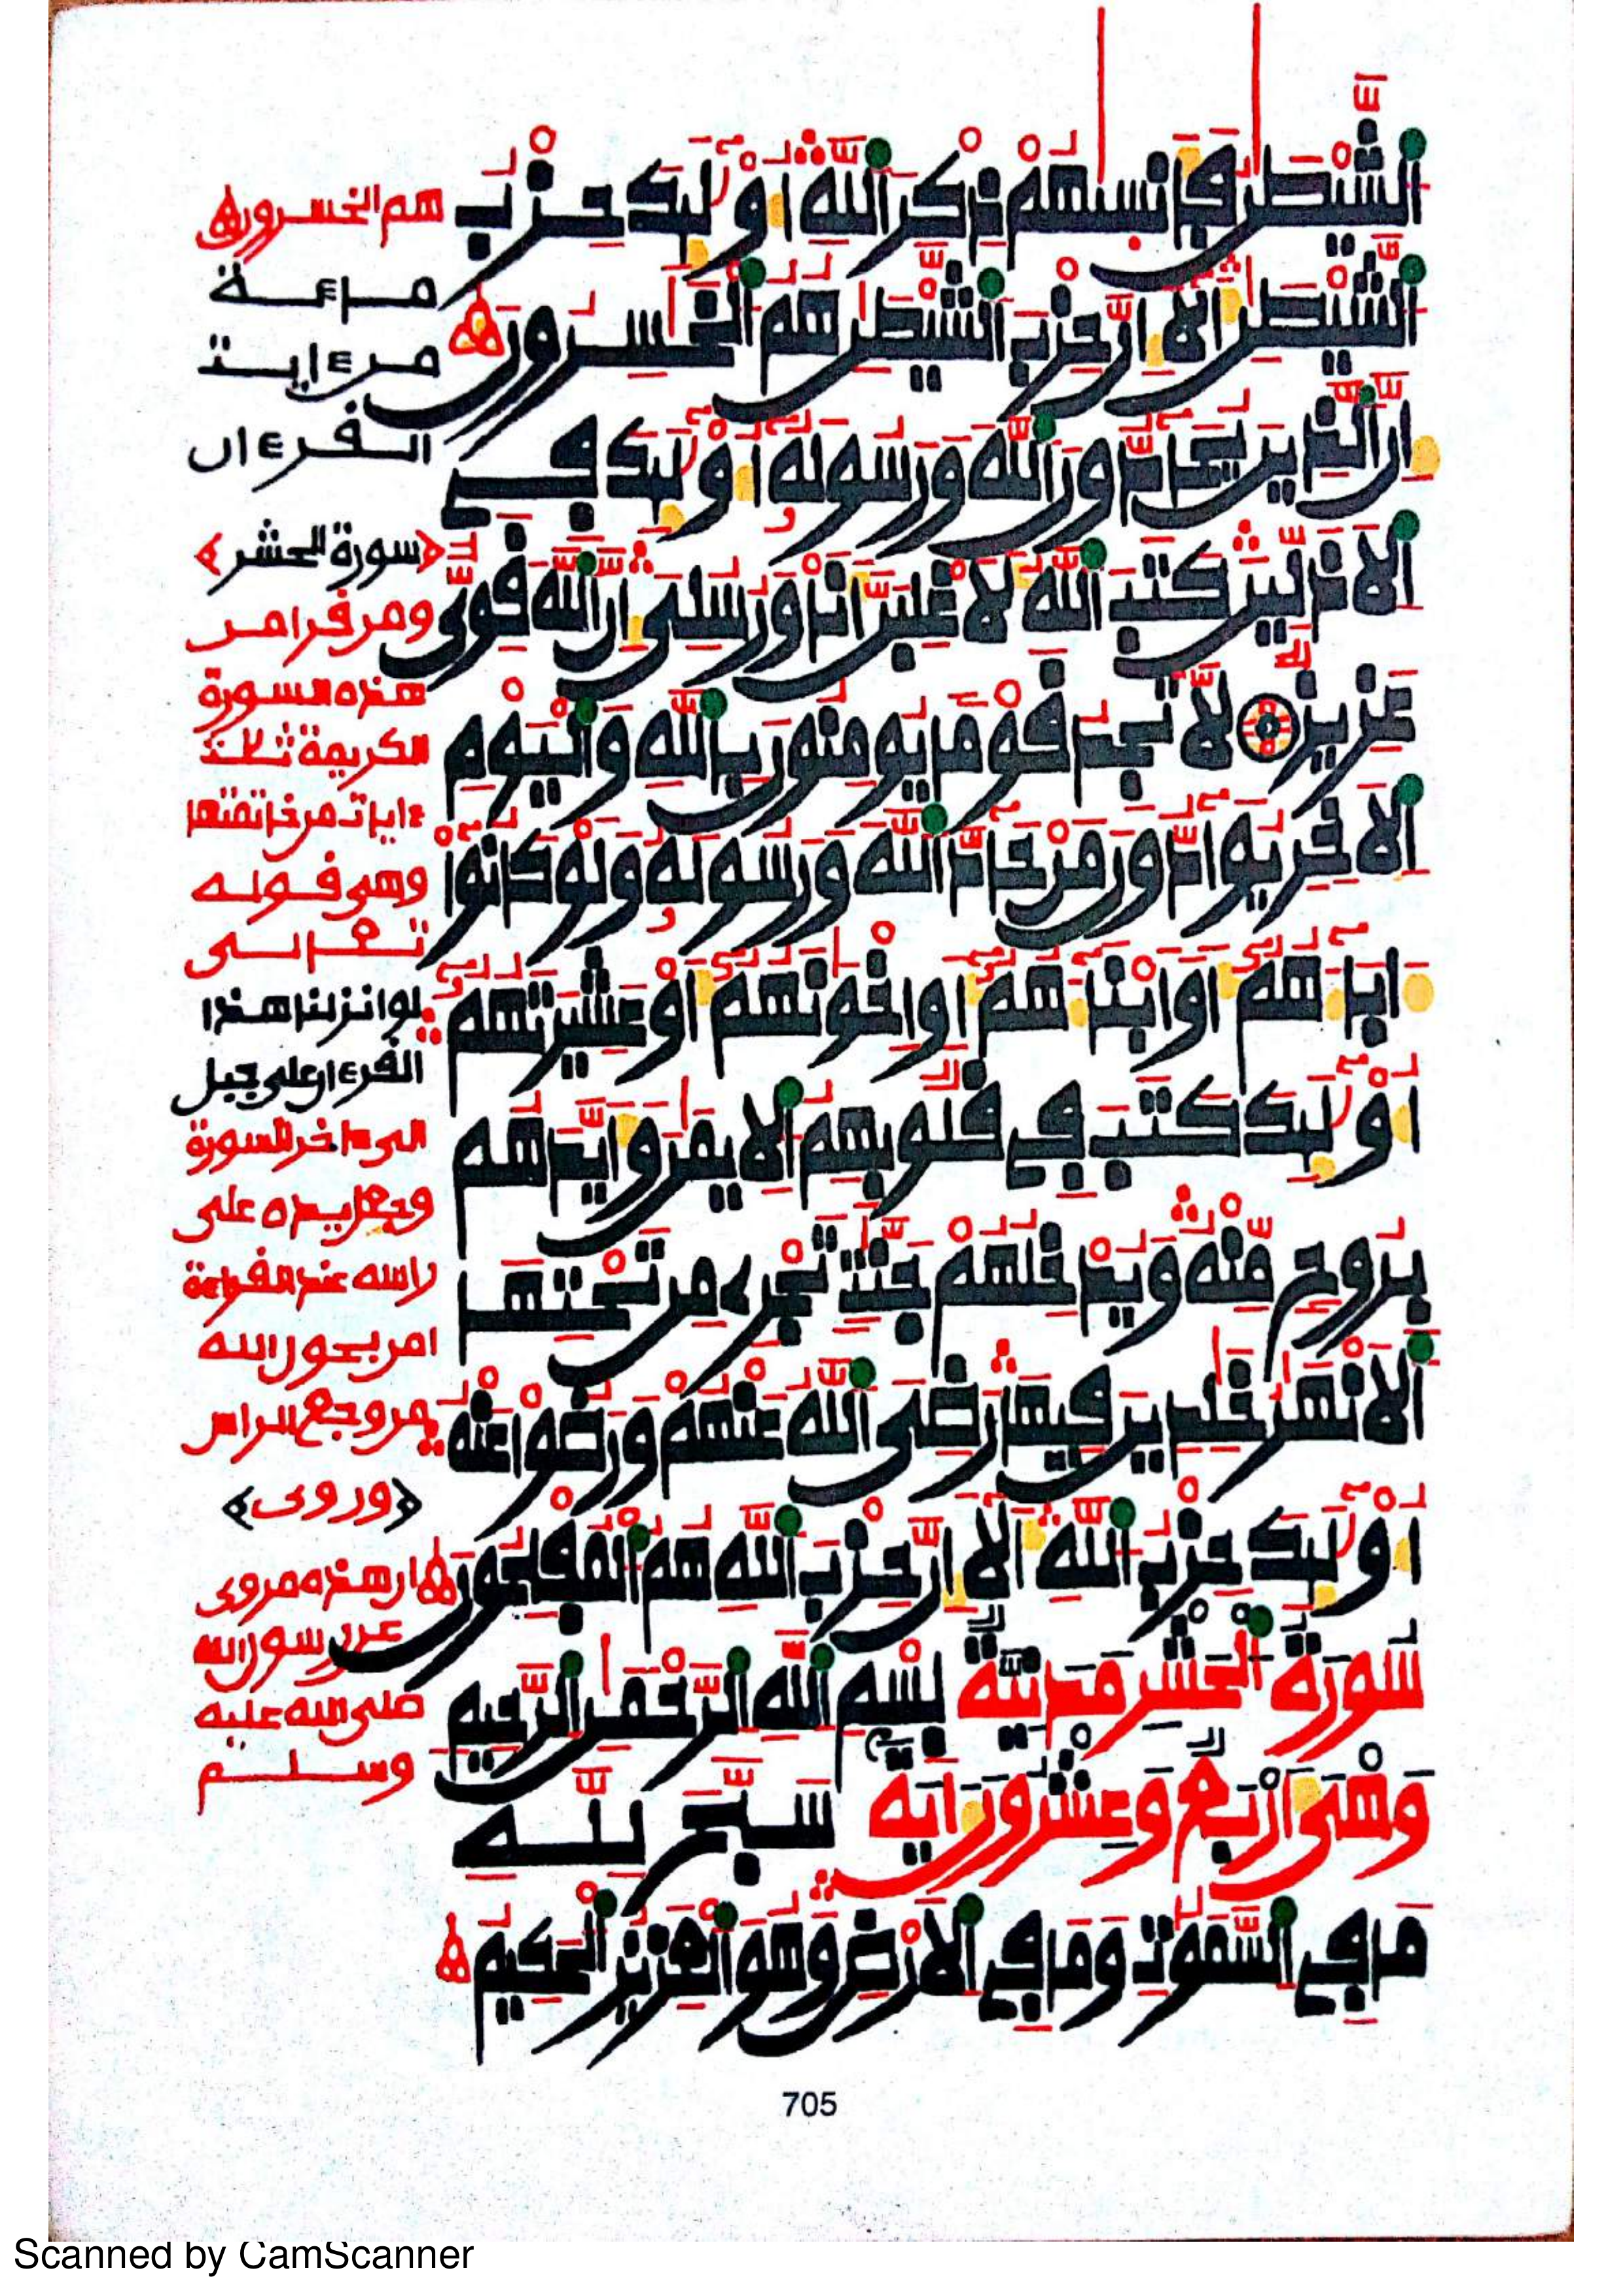 الشيطن فانسىهم ذكر الله اوليك حزب
الشيطن الا ان حزب الشيطن هم الخسرون
ان الذين يحادون الله ورسوله اوليك في
الاذلين كتب الله لاغلبن انا ورسلي ان الله قوي
عزيز لا تجد قوما يومنون بالله واليوم
الاخر يوادون من حاد الله ورسوله ولو كانوا
اباهم او ابناهم او اخونهم او عشيرتهم
اوليك كتب في قلوبهم الايمن وايدهم
بروح منه ويدخلهم جنت تجري من تحتها
الانهر خلدين فيها رضي الله عنهم ورضوا عنه
اوليك حزب الله الا ان حزب الله هم المفلحون
سورة الحشر مدنية بسم الله الرحمن الرحيم
وهي اربع وعشرون اية سبح لله
ما في السموت وما في الارض وهو العزيز الحكيم
هم الخسرون
من ءايت
القرءان
﴿سورة الحشر﴾
ومن قرا من
هذه السورة
الكريمة ثلث
ءايات من خاتمتها
وهي قوله
تعالى
لو انزلنا هذا
القرءان على جبل
الى ءاخر السورة
وجعل يده على
راسه عند القراءة
امن بحول الله
من وجع الراس
﴿وروي﴾
ان هذه مروي
عن رسول الله
صلى الله عليه
وسلم
705
Scanned by CamScanner